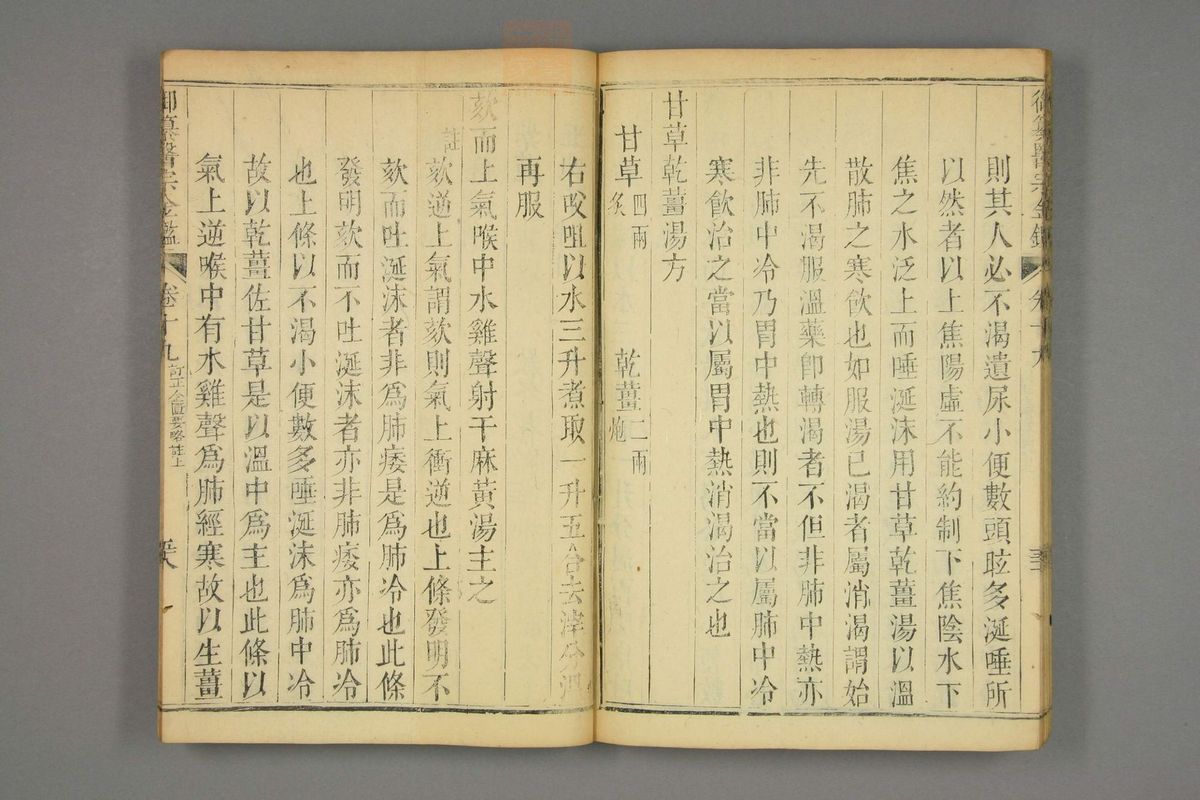 則其人必不渴遺尿小便數頭眩多涎唾所
以然者以上焦陽虛不能約制下焦陰水下
焦之水泛上而唾涎沫用甘草乾薑湯以溫
散肺之寒飲也如服湯已渴者屬消渴謂始
先不渴服溫藥卽轉渴者不但非肺中熱亦
非肺中冷乃胃中熱也則不當以屬肺中冷
寒飲治之當以屬胃中熱消渴治之也
甘草乾薑湯方
甘草四兩炙 乾薑二兩炮
右㕮咀以水三升煮取一升五合去滓分溫
再服
欬而上氣喉中水雞聲射干麻黃湯主之
註
欬逆上氣謂欬則氣上衝逆也上條發明不
欬而吐涎沫者非爲肺痿是爲肺冷也此條
發明欬而不吐涎沫者亦非肺痿亦爲肺冷
也上條以不渴小便數多唾涎沫爲肺中冷
故以乾薑佐甘草是以溫中爲主也此條以
氣上逆喉中有水雞聲爲肺經寒故以生薑
御纂醫宗金鑑 卷十九 訂正金匱要略註上